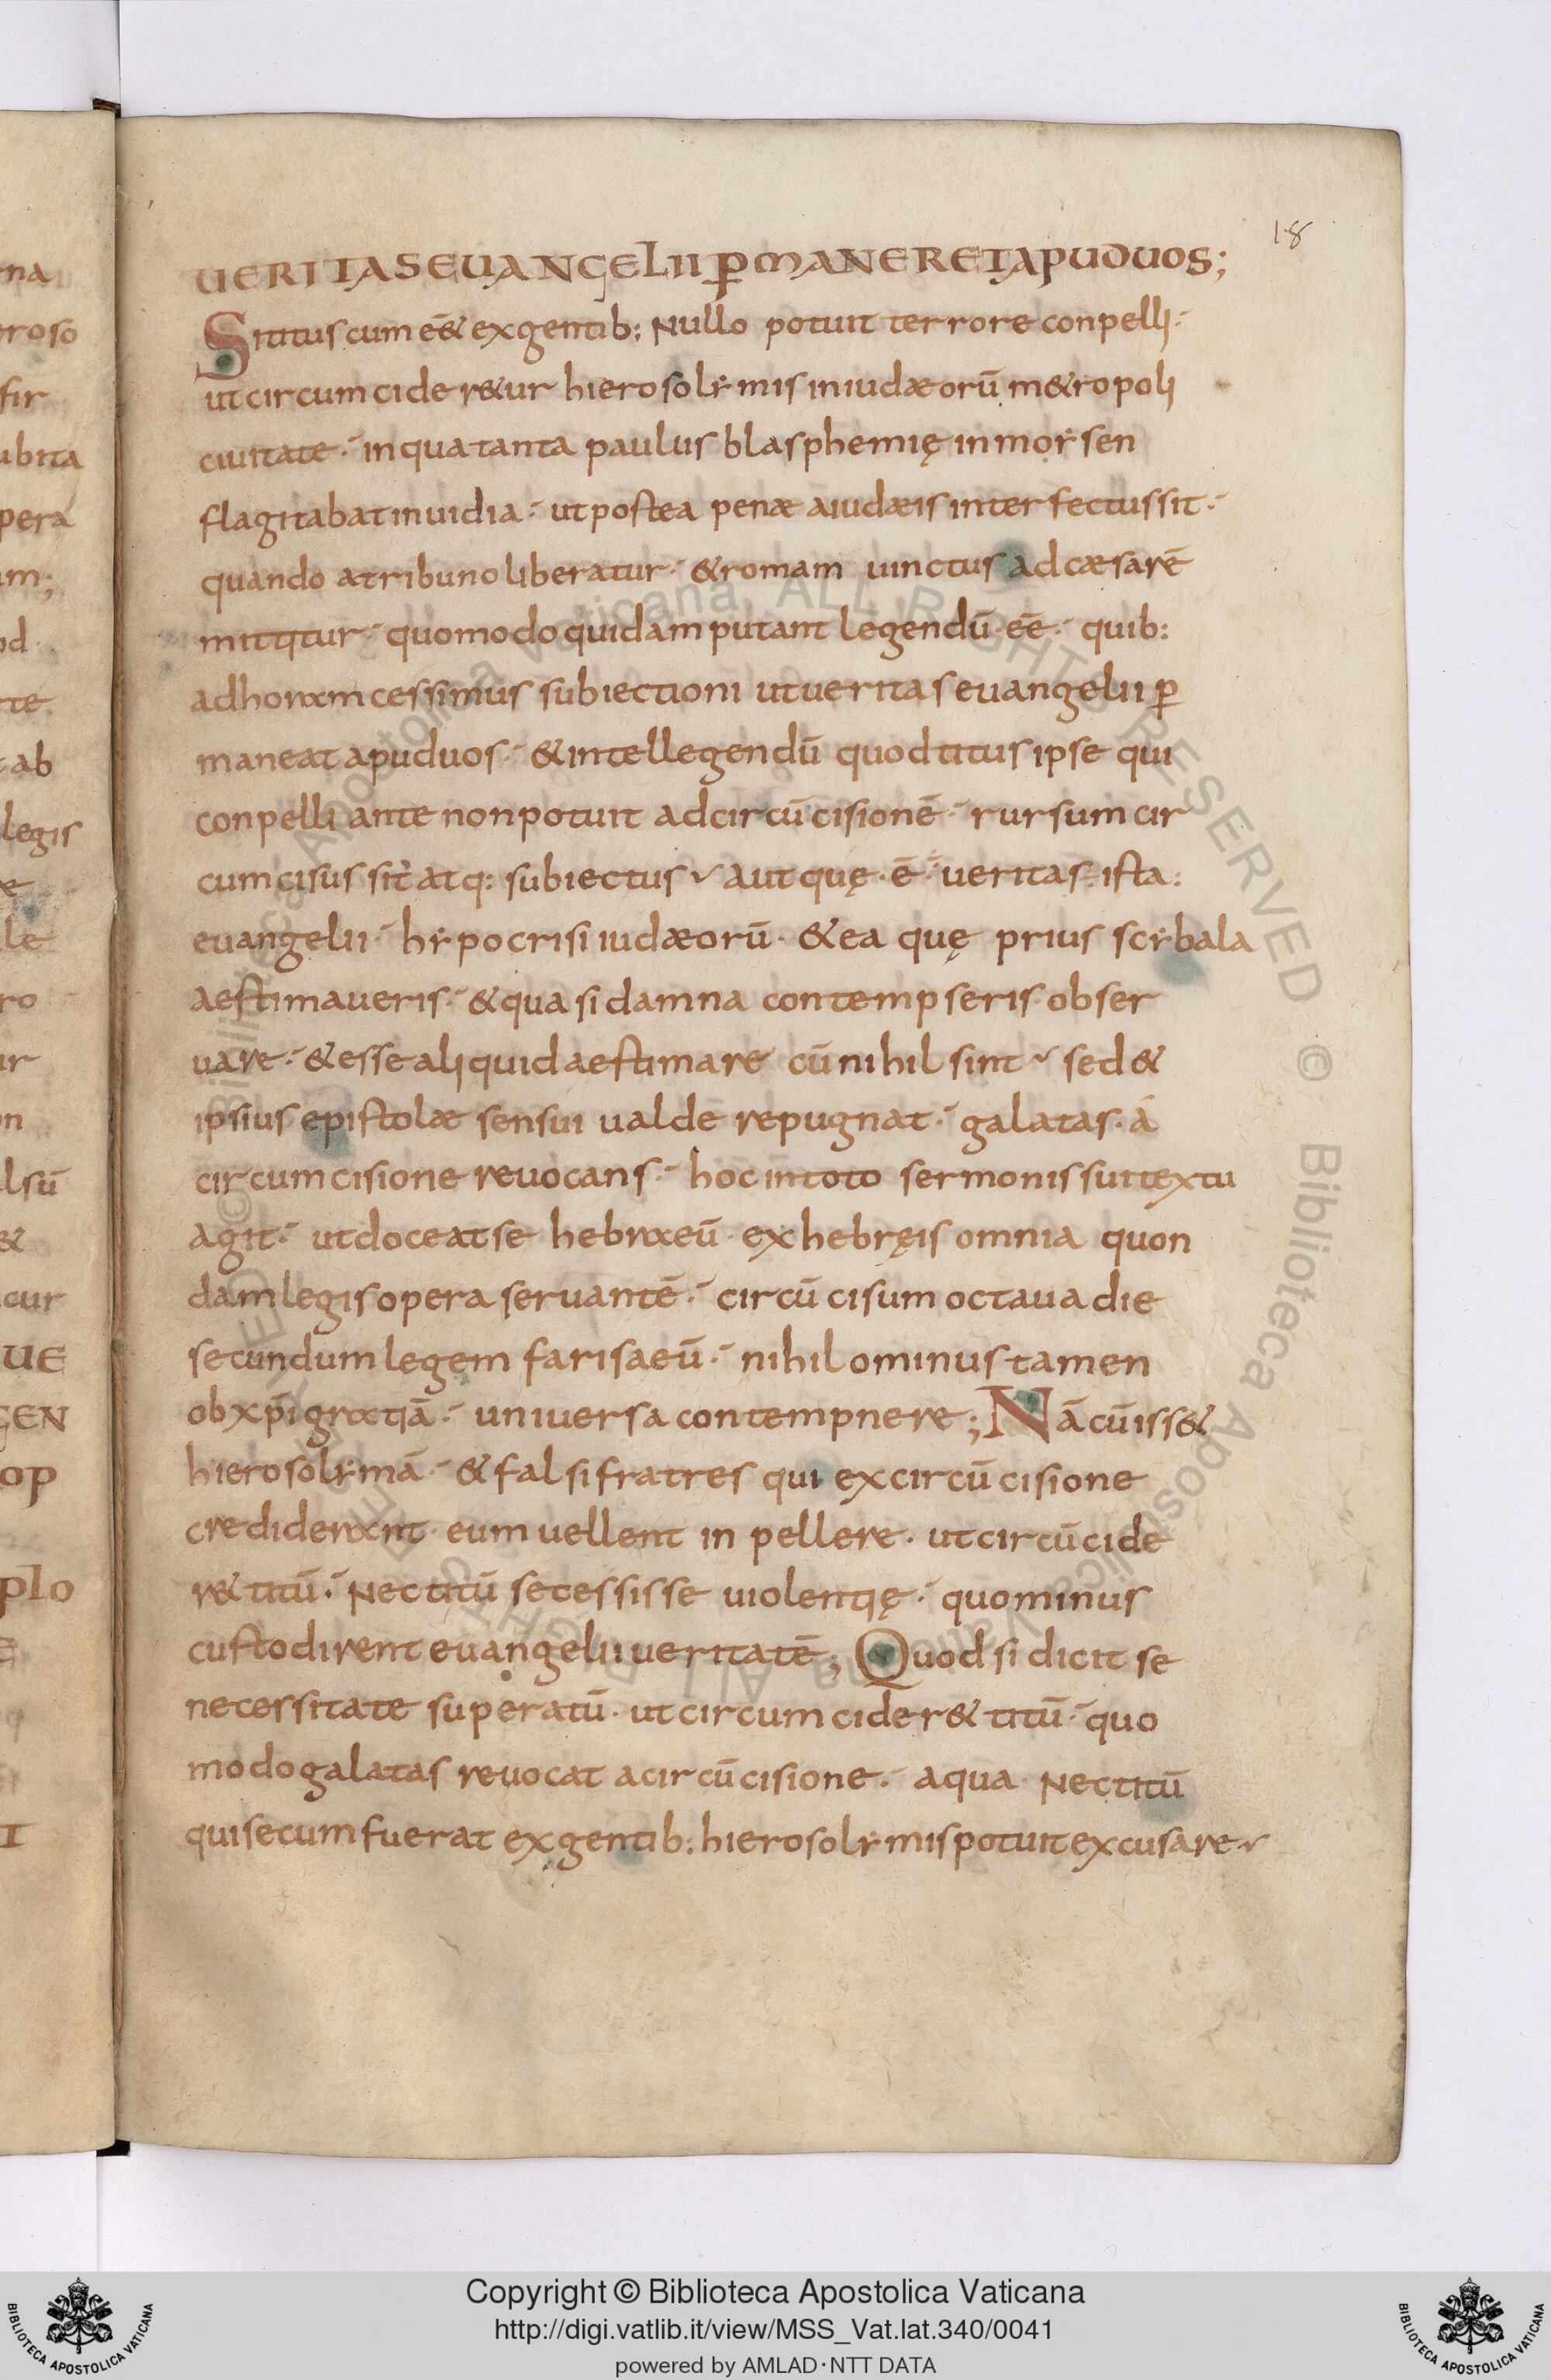 18
UERITAS EUANGELII P̄MANERET APUD UOS;
Si titus cum eē& ex gentib; Nullo potuit terrore conpelli
ut circumcider&ur hierosolẏmis in iudæorū m&ropoli
ciuitate. in qua tanta paulus blasphemię in moẏsen
flagitabat inuidia. ut postea penæ a iudæis interfectus sit.
quando a tribuno liberatur. & romam uinctus ad cæsarē
mittitur. quomodo quidam putant legendū eē. quib:
ad horam cessimus subiectioni ut ueritas euangelii p̄
maneat apud uos. & intellegendū quod titus ipse qui
conpelli ante non potuit ad circūcisionē. rursum cir
cumcisus sit atq: subiectus. aut quę ē. ueritas ista
euangelii. hẏpocrisi iudæorū. & ea quę prius scẏbala
aestimaueris. & quasi damna contempseris obser
uare. & esse aliquid aestimare cū nihil sint. sed &
ipsius epistolæ sensui ualde repugnat. galatas. á
circumcisione reuocans. hoc in toto sermonis sui textu
agit. ut doceat se hebraeū ex hebręis omnia quon
dam legis opera seruantē. circūcisum octaua die
secundum legem farisaeū. nihilominus tamen
ob xp̄i gratiā. uniuersa contempnere; Nā cū iss&
hierosolẏmā. & falsi fratres qui ex circūcisione
crediderant. eum uellent inpellere. ut circūcide
r& titū. Nec titū se cessisse uiolentię. quominus
custodirent euangelii ueritatē; Quod si dicit se
necessitate superatū. ut circumcider& titū. quo
modo galatas reuocat a circūcisione. a qua Nec titū
qui secum fuerat ex gentib; hierosolẏmis potuit excusare
na
roso
fir
ubita
pera
um;
od
te
t ab
legis
le
ro
ur
on
lsū
&
cur
UE
GEN
op
plo
I
© Biblioteca Apostolica Vaticana ALL RIGHTS RESERVED © Biblioteca Apostolica Vaticana ALL RIGHTS RESERVED
Copyright © Biblioteca Apostolica Vaticana
http://digi.vatlib.it/view/MSS_Vat.lat.340/0041
powered by AMLAD·NTT DATA
BIBLIOTECA APOSTOLICA VATICANA
BIBLIOTECA APOSTOLICA VATICANA